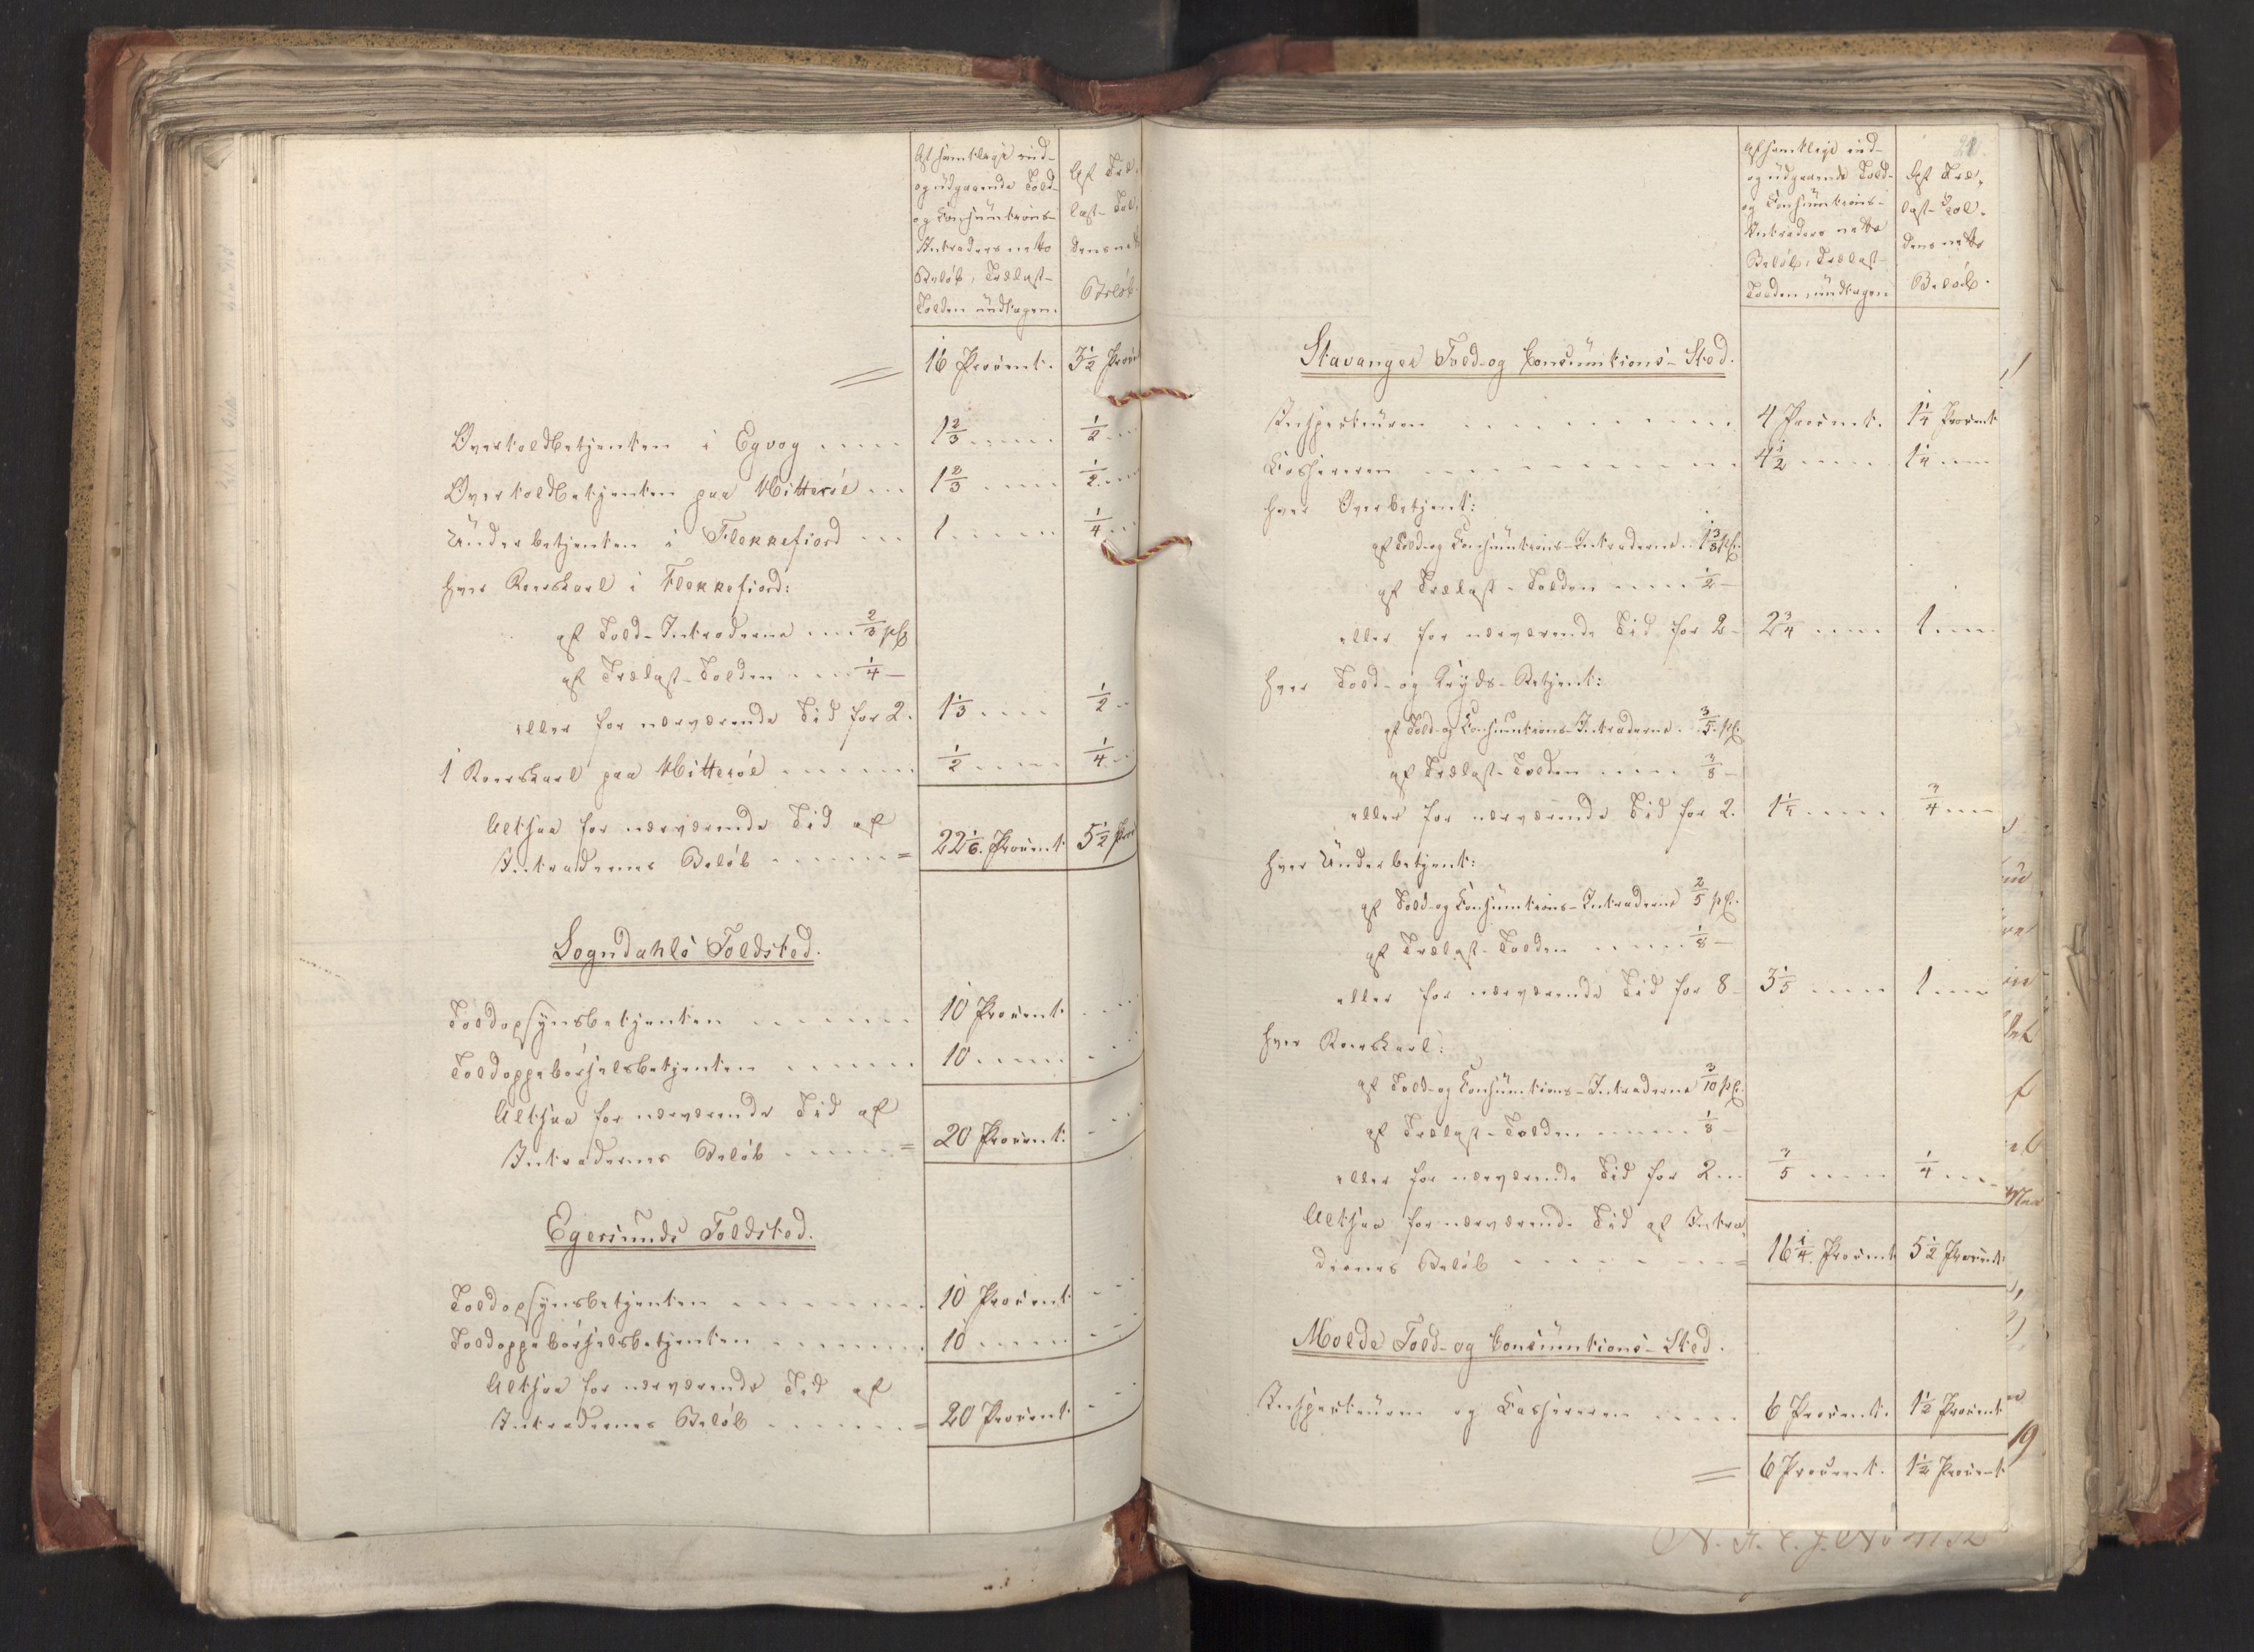 Af samtlige ind-
og udgaaende Told-
og Consumtions-
Intraders netto
Beløb, Trælast-
Tolden undtagen.
Af Træ-
last-Tol-
dens netto
Beløb.
= 16 Procent. 3 1/2 Procent
Overtoldbetjenten i Egvog ..... 1 2/3 ..... 1/2 ...
Overtoldbetjenten paa Hitterøe ... 1 2/3 ..... 1/2 ...
Underbetjenten i Flekkefiord ... 1 ..... 1/4 ...
hver Roerskarl i Flekkefiord:
af Told-Intraderne .... 2/3 pC.
af Trælast-Tolden .... 1/4 —
eller for nærværende Tid for 2. 1 1/3 .... 1/2 ..
1 Roerskarl paa Hitterøe ...... 1/2 ..... 1/4 ..
Altsaa for nærværende Tid af
Intradernes Beløb ...... = 22 1/6. Procent 5 1/2 Proc
Sogndahls Toldsted.
Toldopsynsbetjenten ...... 10 Procent ...
Toldoppebørselsbetjenten ...... 10 ..... ...
Altsaa for nærværende Tid af
Intradernes Beløb ...... = 20 Procent. ...
Egersunds Toldsted.
Toldopsynsbetjenten ........ 10 Procent ...
Toldoppebørselsbetjenten ....... 10 ..... ...
Altsaa for nærværende Tid af
Intradernes Beløb ...... = 20 Procent ..
21.
Af samtlige ind-
og udgaaende Told-
og Consumtions-
Intraders netto
Beløb, Trælast-
Tolden undtagen
Af Træ-
last-Tol-
dens netto
Beløb.
Stavanger Told- og Consumtions-Sted.
Inspecteuren .......... 4 Procent. 1 1/4 Procent
Cassereren .......... 4 1/2 ..... 1 1/4 ....
hver Overbetjent:
af Told- og Consumtions-Intraderne .. 1 3/8 pC.
af Trælast-Tolden ..... 1/2 —
eller for nærværende Tid for 2 - 2 3/4 .... 1 ....
hver Told- og Kryds-Betjent:
af Told- og Consumtions-Intraderne . 3/5. pC.
af Trælast-Tolden ..... 3/8 —
eller for nærværende Tid for 2. 1 1/5 .... 3/4 ....
hver Underbetjent:
af Told- og Consumtions-Intraderne 2/5 pC.
af Trælast-Tolden ..... 1/8 —
eller for nærværende Tid for 8 - 3 1/5 .... 1 ....
hver Roerskarl:
af Told- og Consumtions-Intraderne 3/10 pC.
af Trælast-Tolden ..... 1/8 —
eller for nærværende Tid for 2 ... 3/5 ..... 1/4 ....
Altsaa for nærværende Tid af Intra-
dernes Beløb ......... = 16 1/4. Procent 5 1/2 Procent
Molde Told- og Consumtions-Sted.
Inspecteuren og Casereren .... 6 Procent. 1 1/2 Procent
= 6 Procent. 1 1/2 Procent
19